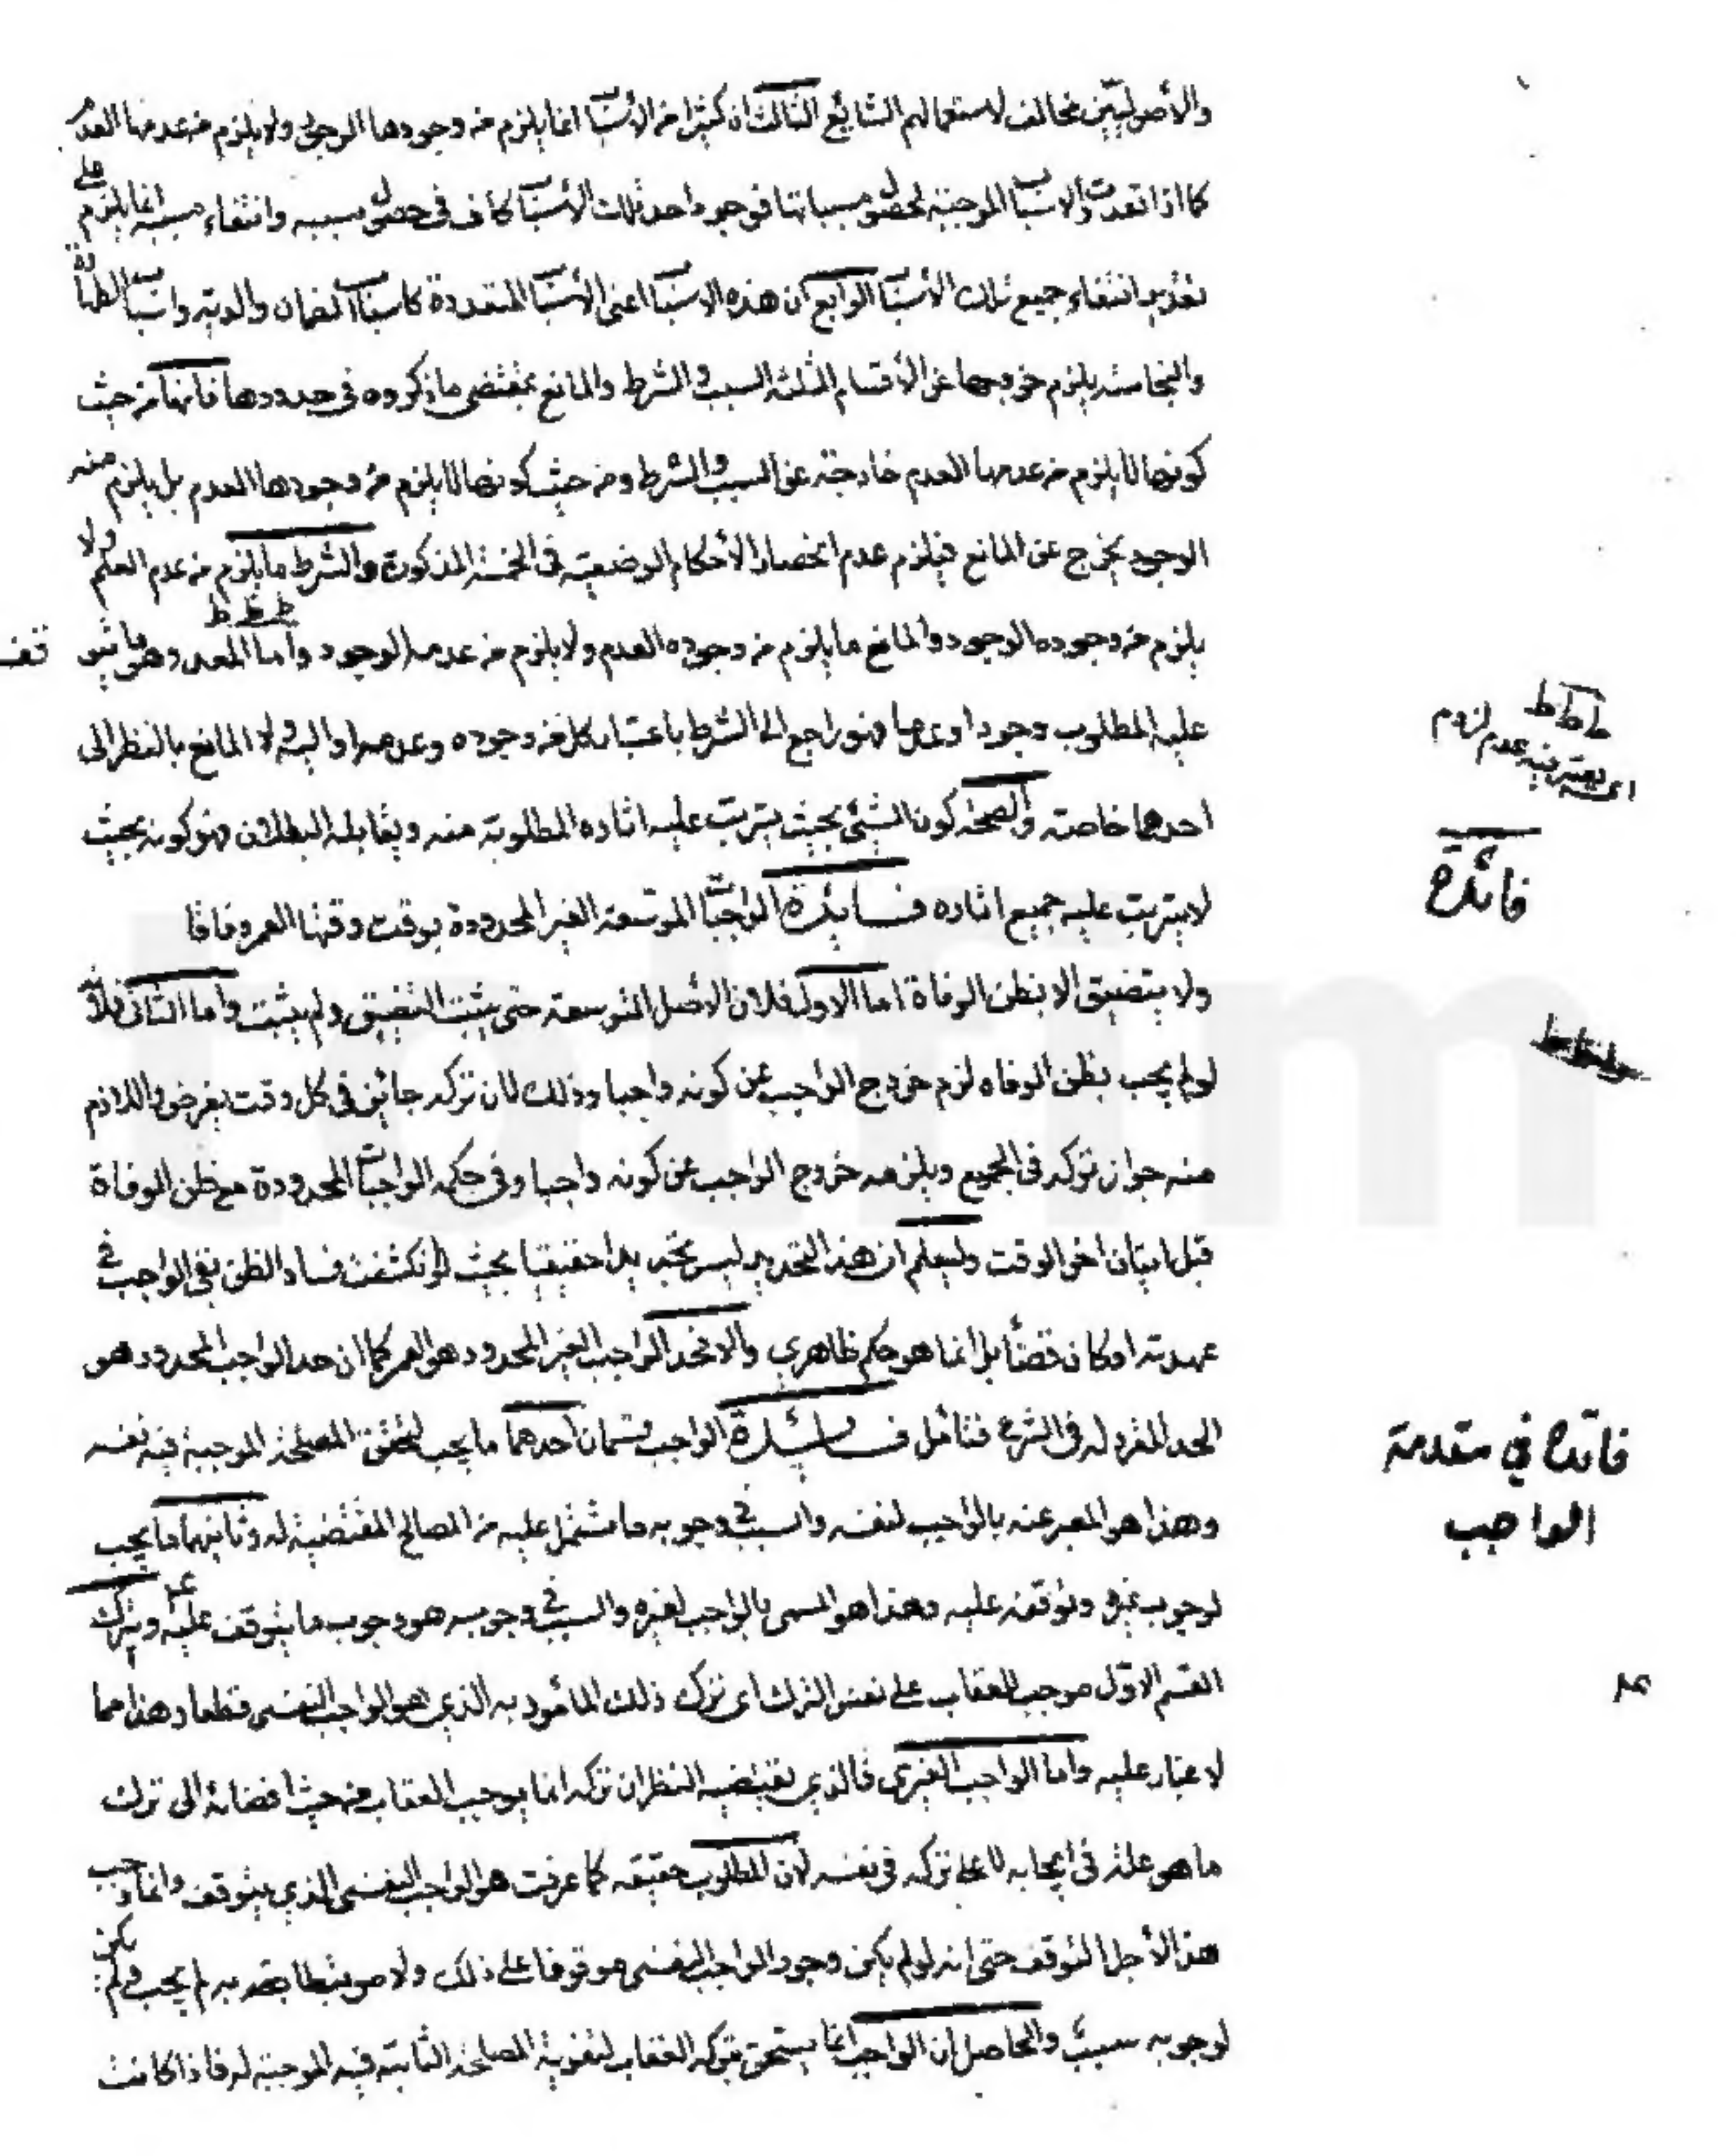 والأصوليين مخالف لاستعمالهم الشايع الثالث ان كثيرا من الأسباب انما يلزم من وجودها الوجود ولا يلزم من عدمها العدم
كما اذا تعددت الاسباب الموجبة لحصول مسبباتها فوجود احد تلك الأسباب كاف في حصول مسببه وانتفاء مسببه انما يلزم على
تقدير انتفاء جميع تلك الأسباب الرابع ان هذه الاسباب اعنى الأسباب المتعددة كاسباب الضمان والدية واسباب الطهارة
والنجاسة يلزم خروجها عن الأقسام الثلثة السبب والشرط والمانع بمقتضى ما ذكروه في حدودها فانها من حيث
كونها لا يلزم من عدمها العدم خارجة عن السبب والشرط ومن حيث كونها لا يلزم من وجودها العدم بل يلزم منه
الوجود يخرج عن المانع فيلزم عدم انحصار الأحكام الوضعية في الخمسة المذكورة والشرط ما يلزم من عدم العدم ولا
يلزم من وجوده الوجود والمانع ما يلزم من وجوده العدم ولا يلزم من عدمه الوجود واما المعد وهو ما يتوقف
عليه المطلوب وجودا وعدما فهو راجع الى الشرط باعتبار كل من وجوده وعدمه والى المانع بالنظر الى
احدهما خاصة والصحة كون الشئ بحيث يترتب عليه اثاره المطلوبة منه ويقابله البطلان فهو كونه بحيث
لا يترتب عليه جميع اثاره فايدة الواجبات الموسعة الغير المحدودة بوقت وقتها العمر وفاقا
ولا يتضيق الا بظن الوفاة اما الاول فلان الأصل التوسعة حتى يثبت التضييق ولم يثبت واما الثاني فلانه
لو لم يجب بظن الوفاه لزم خروج الواجب عن كونه واجبا وذلك لان تركه جائز في كل وقت يفرض واللازم
منه جواز تركه في الجميع ويلزمه خروج الواجب عن كونه واجبا وفي حكمه الواجبات المحدودة مع ظن الوفاة
قبل اتيان اخر الوقت وليعلم ان هذا التحديد ليس تحديدا حقيقيا بحيث لو انكشفت فساد الظن بقى الواجب في
عهدته او كان قضاء بل انما هو حكم ظاهري والا فحد الواجب الغير المحدود هو العمر كما ان حد الواجب المحدود هو
الحد المقرر له في الشرع فتأمل فائدة الواجب قسمان احدهما ما يجب لتحقق المصلحة الموجبة فيه نفسه
وهذا هو المعبر عنه بالواجب لنفسه والسبب في وجوبه ما اشتمل عليه من المصالح المقتضية له وثانيهما ما يجب
لوجوب غيره وتوقفه عليه وهذا هو المسمى بالواجب لغيره والسبب في وجوبه هو وجوب ما يتوقف عليه وترك
القسم الاول موجب للعقاب على نفس الترك اى ترك ذلك المأمور به الذي هو الواجب النفسى قطعا وهذا مما
لا غبار عليه واما الواجب الغيرى فالذي يقتضيه النظر ان تركه انما يوجب العقاب من حيث افضائه الى ترك
ما هو علة في ايجابه لا على تركه في نفسه لان المطلوب حقيقه كما عرفت هو الواجب النفسى الذي يتوقف وانما وجب
هذا لأجل التوقف حتى انه لو لم يكن وجود الواجب النفسى موقوفا على ذلك ولا مرتبطا بقصد به لم يجب ولم يكن
لوجوبه سبب والحاصل ان الواجب انما يستحق بتركه العقاب لتفويت المصلحة الثابتة فيه الموجبة له فاذا كانت
اى يعتبر فيه عدم لزوم
فائدة
فائدة في مقدمة
الواجب